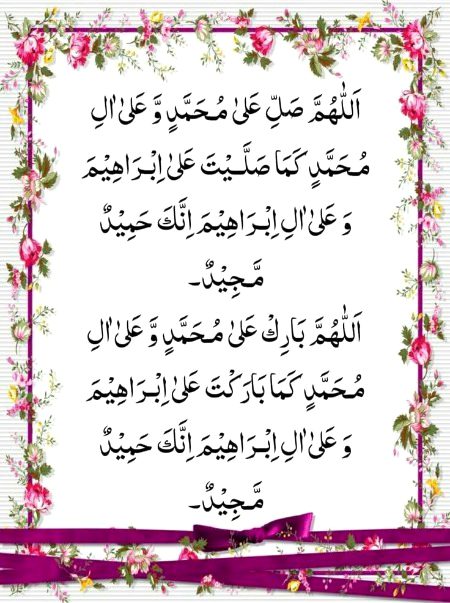 اَللّٰهُمَّ صَلِّ عَلىٰ مُحَمَّدٍ وَّ عَلىٰ اٰلِ
مُحَمَّدٍ كَمَا صَلَّيْتَ عَلىٰ اِبْرَاهِيْمَ
وَ عَلىٰ اٰلِ اِبْرَاهِيْمَ اِنَّكَ حَمِيْدٌ
مَّجِيْدٌ۔
اَللّٰهُمَّ بَارِكْ عَلىٰ مُحَمَّدٍ وَّ عَلىٰ اٰلِ
مُحَمَّدٍ كَمَا بَارَكْتَ عَلىٰ اِبْرَاهِيْمَ
وَ عَلىٰ اٰلِ اِبْرَاهِيْمَ اِنَّكَ حَمِيْدٌ
مَّجِيْدٌ۔